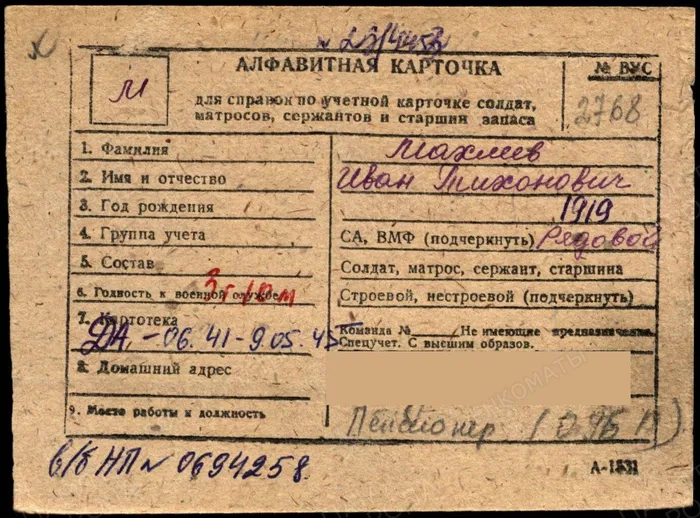 АЛФАВИТНАЯ КАРТОЧКА
№ ВУС
М
для справок по учетной карточке солдат,
матросов, сержантов и старшин запаса
2768
1. Фамилия
2. Имя и отчество Иван Тихонович
3. Год рождения 1919
4. Группа учета СА, ВМФ (подчеркнуть) Рядовой
5. Состав Солдат, матрос, сержант, старшина
6. Годность к военной службе Строевой, нестроевой (подчеркнуть)
3г 10м
7. Картотека Команда № Не имеющие предназначения
ДА - 06.41-9.05.45 Спецучет. С высшим образов.
8. Домашний адрес
9. Место работы и должность Пенсионер
в/б НП № 0694258
А-1531